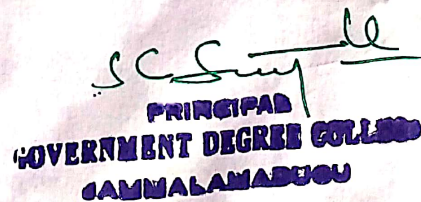 PRINCIPAL
GOVERNMENT DEGREE COLLEGE
JAMMALAMADUGU